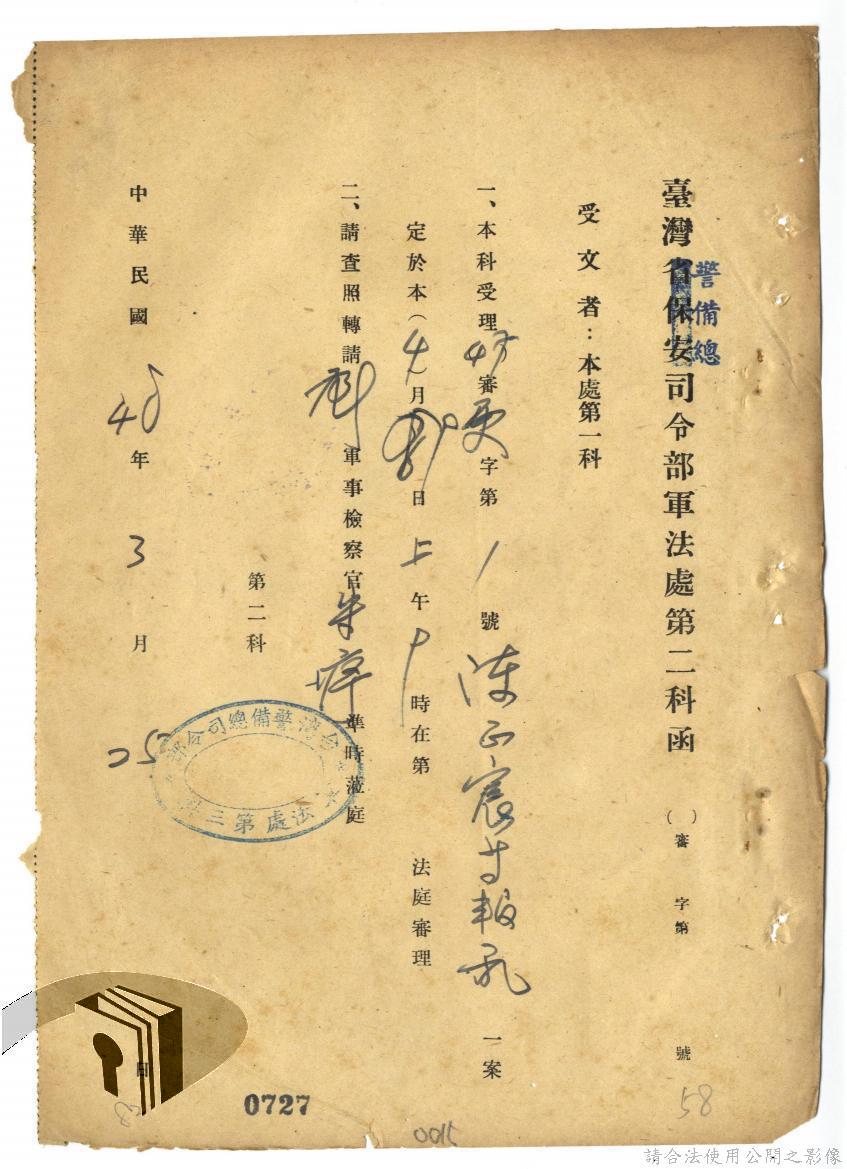 臺灣省保安司令部軍法處第二科函 ( )審 字第 號
警備總
58
受文者：本處第一科
一、本科受理 45審更字第 1 號 一案
定於本（4）月 日 上午 時在第 法庭審理
二、請查照轉請 軍事檢察官 準時蒞庭
第二科
台灣警備總司令部
法處第三
中華民國 45年 3 月 25 日
0727
0015
請合法使用公開之影像